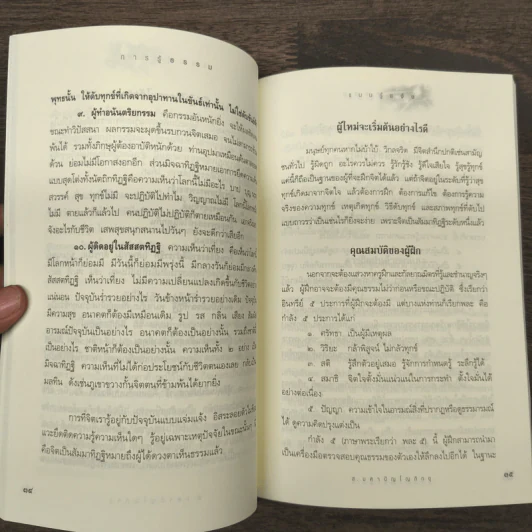 การรู้ธรรม
พุทธนั้น ให้ดับทุกข์ที่เกิดจากอุปาทานในขันธ์เท่านั้น ไม่ใช่ดับขันธ์
๙. ผู้ทำอนันตริยกรรม คือกรรมอันหนักยิ่ง จะ
ขณะทำวิปัสสนา ผลกรรมจะผุดขึ้นรบกวนจิตเสมอ จนไม่สามารถ
ได้ รวมทั้งภิกษุผู้ต้องอาบัติหนักด้วย
ด้วย ย่อมไม่มีโอกาสงอกอีก ส่วนมิจฉาทิฏฐิหมายเอาการยึดความ
แบบสุดโต่งทั้งนัตถิกทิฏฐิคือความเห็นว่าโลกนี้ไม่มีอะไร บาป
สวรรค์ สุข ทุกข์ไม่มี จะปฏิบัติไปทำไม วิญญาณไม่มี โลกนี้
ไม่มี ตายแล้วก็แล้วไป คนปฏิบัติไม่ปฏิบัติก็ตายเหมือนกัน
จังอะไรกับชีวิต เสพสุขสนุกสนานไปวันๆ ยังจะดีกว่าเสียอีก
๑๐. ผู้ติดอยู่ในสัสสตทิฏฐิ ความเห็นว่าเที่ยง คือเห็นว่า
มีโลกหน้าก็ย่อมมี มีวันนี้ก็ย่อมมีพรุ่งนี้ มีกลางวันก็ย่อมมี
สัสสตทิฏฐิ เห็นว่าเที่ยง ไม่มีความเปลี่ยนแปลงเกิดขึ้นกับชีวิต
แน่นอน ปัจจุบันร่ำรวยอย่างไร วันข้างหน้าร่ำรวยอย่างเดิม
มี อนาคตก็ต้องมีเหมือนเดิม รูป รส กลิ่น เสียง สัมผัส
อารมณ์ปัจจุบันเป็นอย่างไร อนาคตก็ต้องเป็นอย่างนั้น
เป็นอย่างไร ชาติหน้าก็ต้องเป็นอย่างนั้น ความเห็นทั้ง ๒ อย่าง
มิจฉาทิฏฐิ ความเห็นที่ไม่ได้ก่อประโยชน์กับชีวิตตนเองเลย
ผลทัน ดังเช่นภูเขาขวางกั้นจิตตนที่ข้ามพ้นได้ยากยิ่ง
การที่จิตเรารู้อยู่กับปัจจุบันแบบแจ่มแจ้ง อิสระลอยตัว
แวะยึดติดความรู้ความเห็นใดๆ รู้อยู่เฉพาะเหตุปัจจัยในขณะนั้นๆ
คือจิตเป็นสัมมาทิฏฐิหมายถึงผู้ได้ดวงตาเห็นธรรมแล้ว
๑๔
ผู้ใหม่จะเริ่มต้นอย่างไรดี
มนุษย์ทุกคนหากไม่บ้าใบ้ วิกลจริต มีจิตสำนึกปกติเช่นสามัญ
ชนทั่วไป รู้ผิดถูก อะไรควรไม่ควร รู้รักรู้ชัง รู้ดีใจเสียใจ รู้สุขรู้ทุกข์
แค่นี้ก็ถือเป็นฐานของผู้ที่จะฝึกจิตได้แล้ว แต่ถ้าจิตอยู่ในระดับที่รู้ว่าสุข
ทุกข์เกิดมาจากจิตใจ แล้วต้องการฝึก ต้องการแก้ไข ต้องการรู้ความ
จริงของความทุกข์ เหตุเกิดทุกข์ วิธีดับทุกข์ และสภาพทุกข์ที่ดับไป
แบบถาวรว่าเป็นเช่นไรก็ยิ่งจะง่าย เพราะจิตเป็นสัมมาทิฏฐิระดับหนึ่งแล้ว
คุณสมบัติของผู้ฝึก
นอกจากจะต้องแสวงหาครูฝึกและกัลยาณมิตรที่รู้และชำนาญจริงๆ
แล้ว ผู้ฝึกอาจจะต้องมีคุณธรรมไม่ว่าก่อนหรือขณะปฏิบัติ ซึ่งเรียกว่า
อินทรีย์ ๕ ประการที่ผู้ฝึกจะมี แต่บางแห่งท่านก็เรียกพละ คือ
กำลัง ๕ ประการได้แก่
๑ ศรัทธา เป็นผู้มีเหตุผล
๒ วิริยะ กล้าพิสูจน์ ไม่กลัวทุกข์
๓ สติ รู้สึกตัวอยู่เสมอ รู้จักการกำหนดรู้ ระลึกรู้ได้
๔ สมาธิ จิตใจตั้งมั่นแน่วแน่ในการกระทำ ตั้งใจมั่นได้
อย่างต่อเนื่อง
๕ ปัญญา ความเข้าใจในอารมณ์สิ่งที่ปรากฏหรือดูธรรมารมณ์
ได้ ดูความคิดปรุงแต่งเป็น
กำลัง ๕ (ภาษาพระเรียกว่า พละ ๕) นี้ ผู้ฝึกสามารถนำมา
เป็นเครื่องมือตรวจสอบคุณธรรมของตัวเองให้ลึกลงไปอีกได้ ในฐานะ
๑๕